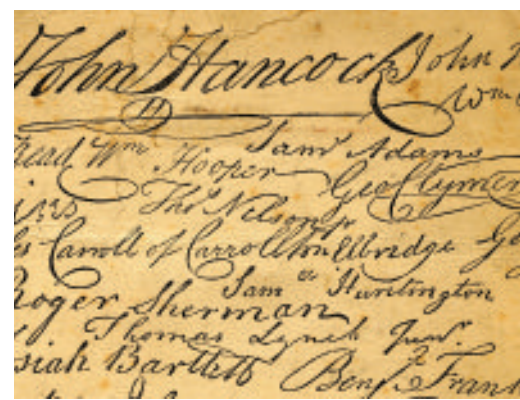 John Hancock John
Wm
Read Wm Hooper Saml Adams
Geo Clymer
Thos Nelson jr
es Carroll of Carrollton Elbridge Ge
Saml Huntington
Roger Sherman
Thomas Lynch Junr.
siah Bartlett Benj. Frank